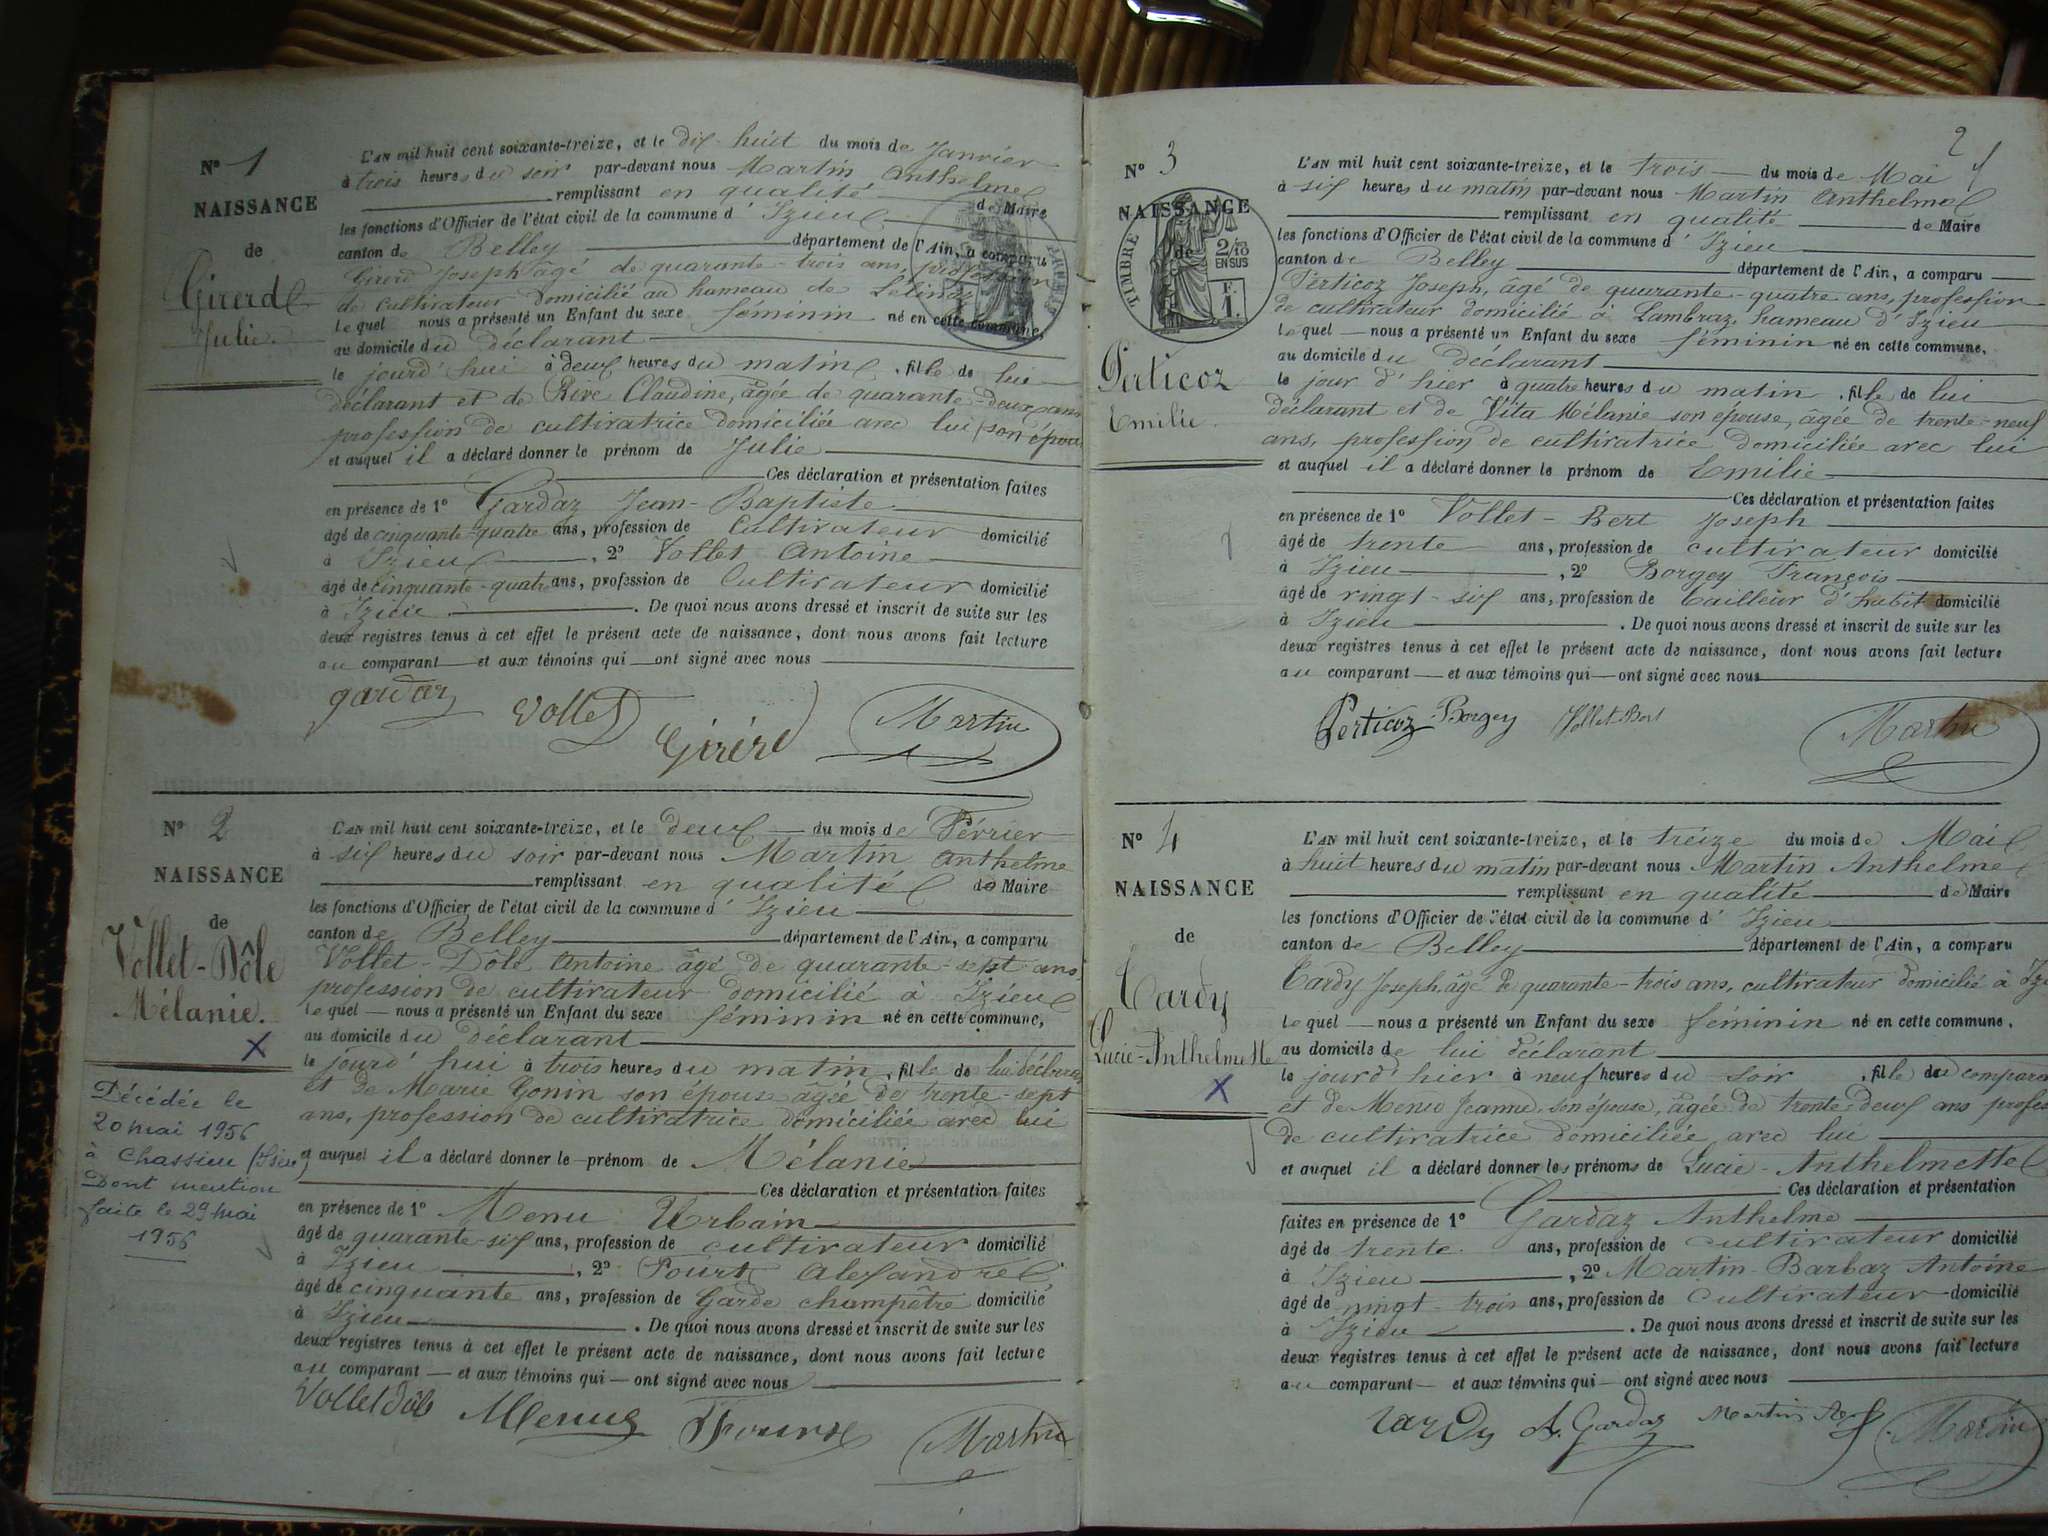 Nº 1
NAISSANCE
de
Girerd
Julie.
L'AN mil huit cent soixante-treize, et le dix-huit du mois de Janvier
à trois heures du soir par-devant nous Martin Anthelme
remplissant en qualité de Maire
les fonctions d'Officier de l'état civil de la commune d'Izieu
canton de Belley département de l'Ain, a comparu
Girerd Joseph âgé de quarante-trois ans, profession
de cultivateur domicilié au hameau de
Lequel nous a présenté un Enfant du sexe féminin né en cette commune,
au domicile du déclarant
le jourd'hui à deux heures du matin, fille de lui
déclarant et de Rive Claudine, âgée de quarante-deux ans
profession de cultivatrice domiciliée avec lui (son épouse
et auquel il a déclaré donner le prénom de Julie
Ces déclaration et présentation faites
en présence de 1º Gardaz Jean-Baptiste
âgé de cinquante-quatre ans, profession de Cultivateur domicilié
à Izieu, 2º Vollet Antoine
âgé de cinquante-quatre ans, profession de Cultivateur domicilié
à Izieu. De quoi nous avons dressé et inscrit de suite sur les
deux registres tenus à cet effet le présent acte de naissance, dont nous avons fait lecture
au comparant et aux témoins qui ont signé avec nous
gardaz Vollet Girerd Martin
Nº 2
NAISSANCE
de
Vollet-Dôle
Mélanie.
X
Décédée le
20 mai 1956
à Chassieu (Isère)
Dont mention
faite le 29 mai
1956
L'AN mil huit cent soixante-treize, et le deux du mois de Février
à six heures du soir par-devant nous Martin Anthelme
remplissant en qualité de Maire
les fonctions d'Officier de l'état civil de la commune d'Izieu
canton de Belley département de l'Ain, a comparu
Vollet-Dôle Antoine âgé de quarante-sept ans,
profession de cultivateur domicilié à Izieu
Lequel nous a présenté un Enfant du sexe féminin né en cette commune,
au domicile du déclarant
le jourd'hui à trois heures du matin, fille de lui déclarant
et de Marie Gonin son épouse âgée de trente-sept
ans, profession de cultivatrice domiciliée avec lui
et auquel il a déclaré donner le prénom de Mélanie
Ces déclaration et présentation faites
en présence de 1º Menu Urbain
âgé de quarante-six ans, profession de cultivateur domicilié
à Izieu, 2º Alexandre
âgé de cinquante ans, profession de Garde champêtre domicilié
à Izieu. De quoi nous avons dressé et inscrit de suite sur les
deux registres tenus à cet effet le présent acte de naissance, dont nous avons fait lecture
au comparant et aux témoins qui ont signé avec nous
Vollet dôle Menu Martin
2
Nº 3
NAISSANCE
de
TIMBRE
2/10
EN SUS
F.
1.
Perticoz
Emilie.
L'AN mil huit cent soixante-treize, et le trois du mois de Mai
à six heures du matin par-devant nous Martin Anthelme
remplissant en qualité de Maire
les fonctions d'Officier de l'état civil de la commune d'Izieu
canton de Belley département de l'Ain, a comparu
Perticoz Joseph, âgé de quarante-quatre ans, profession
de cultivateur domicilié à Lambraz, hameau d'Izieu
Lequel nous a présenté un Enfant du sexe féminin né en cette commune,
au domicile du déclarant
le jour d'hier à quatre heures du matin, fille de lui
déclarant et de Vita Mélanie son épouse, âgée de trente-neuf
ans, profession de cultivatrice domiciliée avec lui
et auquel il a déclaré donner le prénom de Emilie
Ces déclaration et présentation faites
en présence de 1º Vollet-Bert Joseph
âgé de trente ans, profession de cultivateur domicilié
à Izieu, 2º Borgey François
âgé de vingt-six ans, profession de tailleur d'habit domicilié
à Izieu. De quoi nous avons dressé et inscrit de suite sur les
deux registres tenus à cet effet le présent acte de naissance, dont nous avons fait lecture
au comparant et aux témoins qui ont signé avec nous
Perticoz Borgey Vollet-Bert Martin
Nº 4
NAISSANCE
de
Tardy
Lucie-Anthelmette
X
L'AN mil huit cent soixante-treize, et le treize du mois de Mai
à huit heures du matin par-devant nous Martin Anthelme
remplissant en qualité de Maire
les fonctions d'Officier de l'état civil de la commune d'Izieu
canton de Belley département de l'Ain, a comparu
Tardy Joseph, âgé de quarante-trois ans, cultivateur domicilié à Izieu
Lequel nous a présenté un Enfant du sexe féminin né en cette commune,
au domicile de lui déclarant
le jourd'hier à neuf heures du soir, fille du comparant
et de Menu Jeanne, son épouse, âgée de trente-deux ans profes
de cultivatrice domiciliée avec lui
et auquel il a déclaré donner les prénoms de Lucie-Anthelmette
Ces déclaration et présentation
faites en présence de 1º Gardaz Anthelme
âgé de trente ans, profession de cultivateur domicilié
à Izieu, 2º Martin-Barbaz Antoine
âgé de vingt-trois ans, profession de cultivateur domicilié
à Izieu. De quoi nous avons dressé et inscrit de suite sur les
deux registres tenus à cet effet le présent acte de naissance, dont nous avons fait lecture
au comparant et aux témoins qui ont signé avec nous
Tardy A. Gardaz Martin Martin